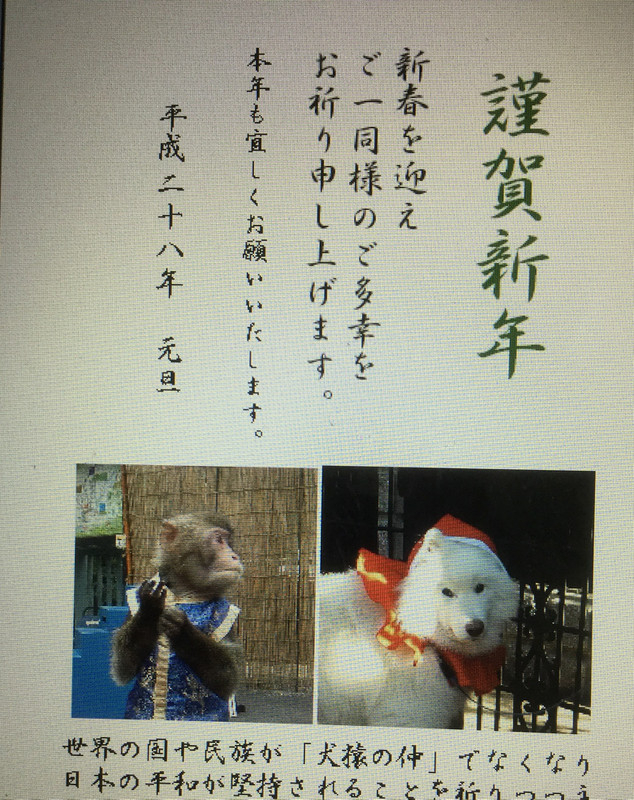 謹賀新年
新春を迎え
ご一同様のご多幸を
お祈り申し上げます。
本年も宜しくお願いいたします。
平成二十八年　元旦
世界の国や民族が「犬猿の仲」でなくなり
日本の平和が堅持されることを祈りつつ